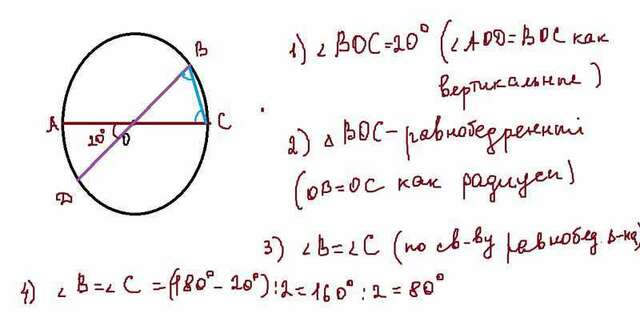 B
A
C
20°
O
D
1) ∠ BOC=20° (∠AOD=BOC как
вертикальные)
2) △ BOC - равнобедренный
(OB=OC как радиусы)
3) ∠B=∠C (по св-ву равнобед. △-ка)
4) ∠B=∠C = (180° - 20°):2=160°:2=80°